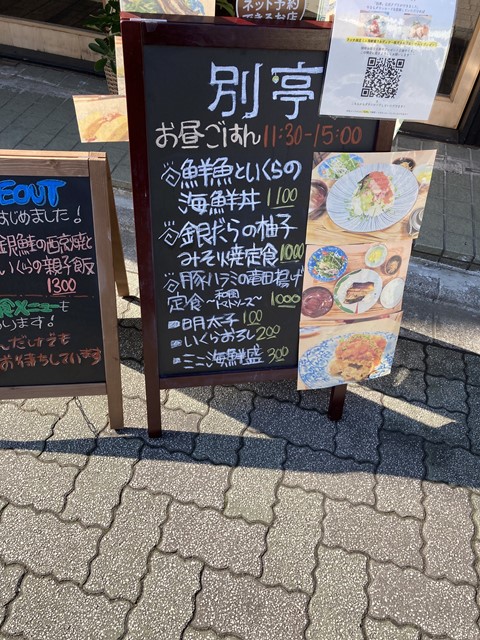 ネット予約
できるお店
別亭
お昼ごはん 11:30-15:00
鮮魚といくらの
海鮮丼 1100
銀だらの柚子
みそ焼定食 1000
豚ハラミの竜田揚げ
定食 〜和風トマトソース〜 1000
明太子 100
いくらおろし 200
ミニ海鮮盛 300
EOUT
はじめました!
銀鮭の西京焼と
いくらの親子飯
1300
食メニューも
あります!
お待ちしています